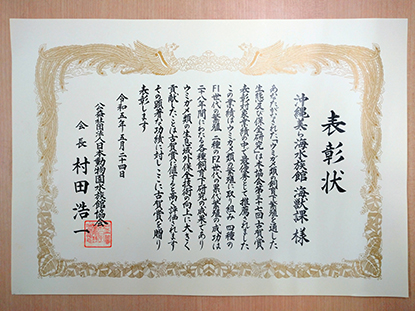 表彰状
沖縄美ら海水族館 海獣課 様
あなたがなされた「ウミガメ類の飼育下繁殖を通した
生態及び保全研究」は本協会第三十七回古賀賞
表彰対象業績の中で最優秀として推薦されました
この業績はウミガメ類の繁殖に取り組み 四種の
F1世代の繁殖 一種のF2世代の累代繁殖の成功は
二十八年間にわたる各種飼育下研究の成果であり
ウミガメ類の生息域外保全技術の向上に大きく
貢献したことは古賀賞に値すると高く評価されます
その顕著な功績に対しここに古賀賞を贈り
表彰します
令和五年五月二十四日
公益社団法人日本動物園水族館協会
会長 村田浩一